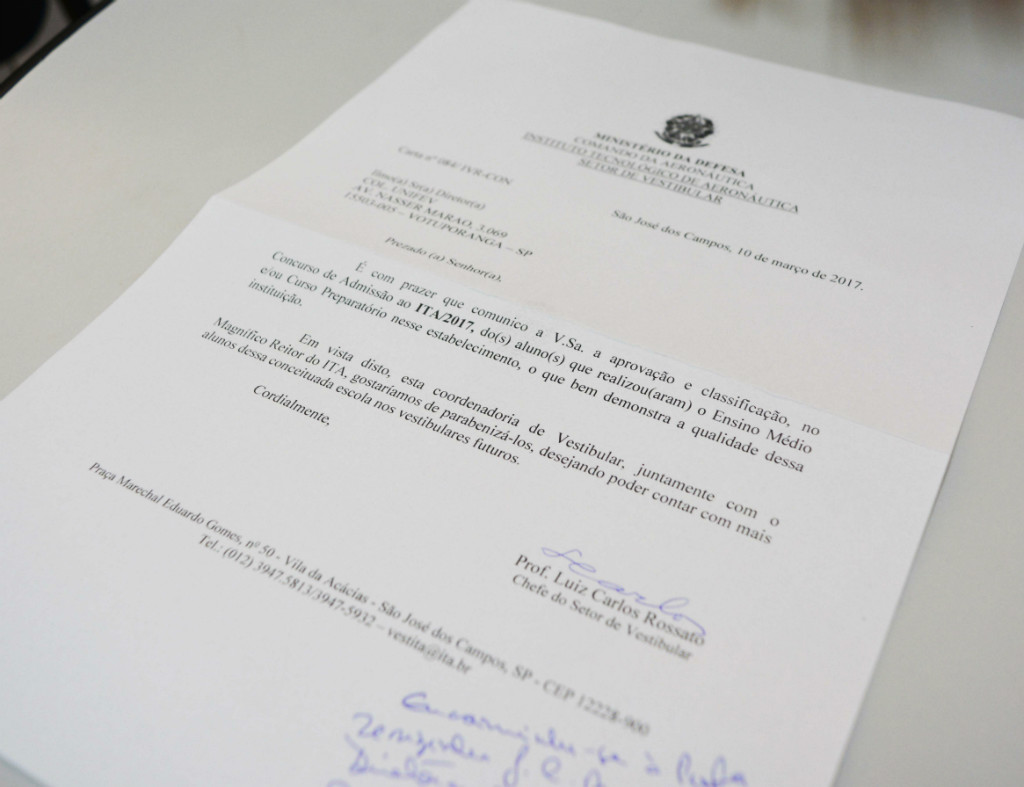 MINISTÉRIO DA DEFESA
COMANDO DA AERONÁUTICA
INSTITUTO TECNOLÓGICO DE AERONÁUTICA
SETOR DE VESTIBULAR
Carta nº 084/IVR-CON
São José dos Campos, 10 de março de 2017.
Ilmo(a) Sr(a) Diretor(a)
COL. UNIFEV
AV. NASSER MARAO, 3.069
15503-005 – VOTUPORANGA – SP
Prezado (a) Senhor(a),
É com prazer que comunico a V.Sa. a aprovação e classificação, no
Concurso de Admissão ao ITA/2017, do(s) aluno(s) que realizou(aram) o Ensino Médio
e/ou Curso Preparatório nesse estabelecimento, o que bem demonstra a qualidade dessa
instituição.
Em vista disto, esta coordenadoria de Vestibular, juntamente com o
Magnífico Reitor do ITA, gostaríamos de parabenizá-los, desejando poder contar com mais
alunos dessa conceituada escola nos vestibulares futuros.
Cordialmente,
Prof. Luiz Carlos Rossato
Chefe do Setor de Vestibular
Praça Marechal Eduardo Gomes, nº 50 - Vila da Acácias - São José dos Campos, SP - CEP 12228-900
Tel.: (012) 3947.5813/3947-5932 – vestita@ita.br